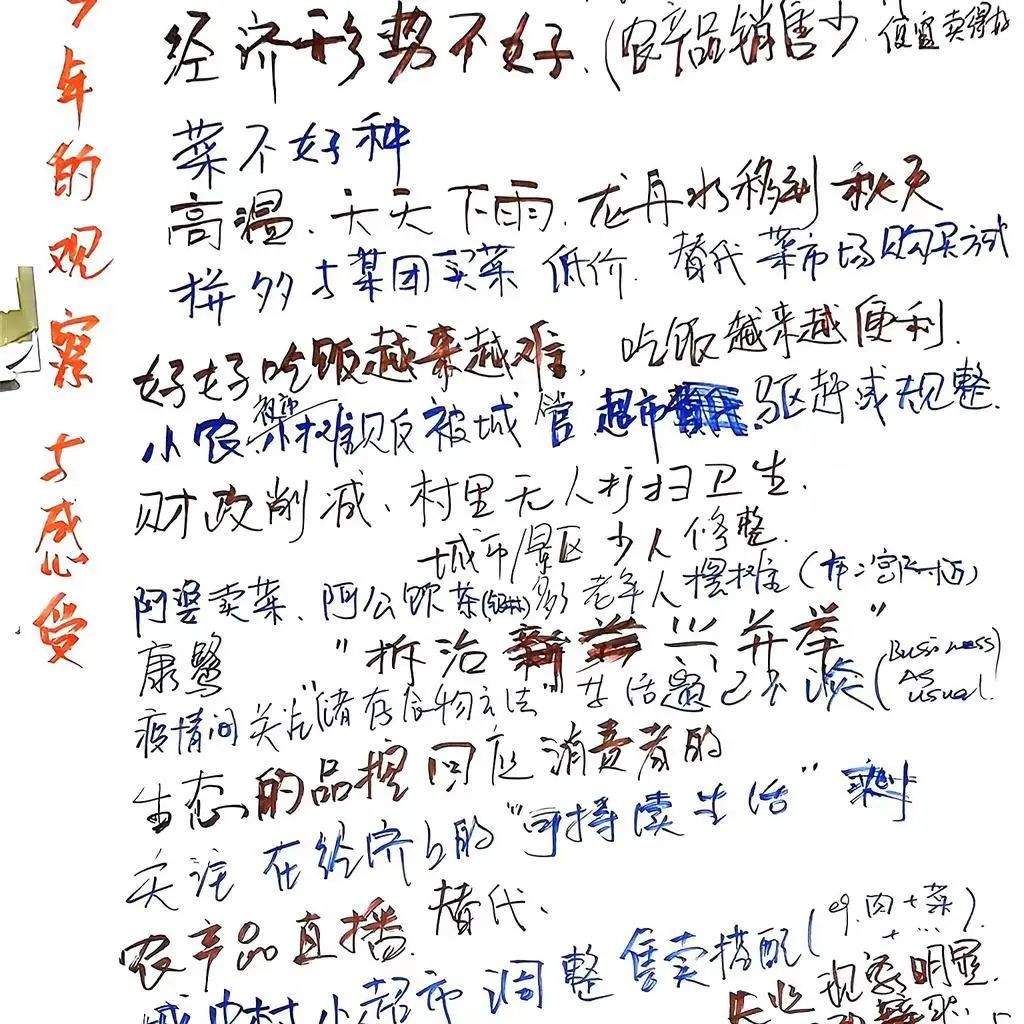 年的观察与感受
经济形势不好.(农产品销售少 便宜卖得好
菜不好种
高温.天天下雨.龙舟水移到秋天
拼多多某团买菜 低价. 替代菜市场购买方式
好好吃饭越来越难, 吃饭越来越便利.
小农菜摊贩被城管 超市 驱赶或规整.
财政削减、村里无人打扫卫生.
城市/景区少人修整.
阿婆卖菜、阿公饮茶 多老年人摆摊
康鹭 "拆治 兴并举"
疫情间关于"储存食物方法" 生活 已不谈(Business As usual.
生态的品 回应消费者的
关注在经济上的"可持续生活"
农产品直播. 替代、
城中村小超市调整售卖搭配(eg.肉+菜)
+ ...
现象明显.